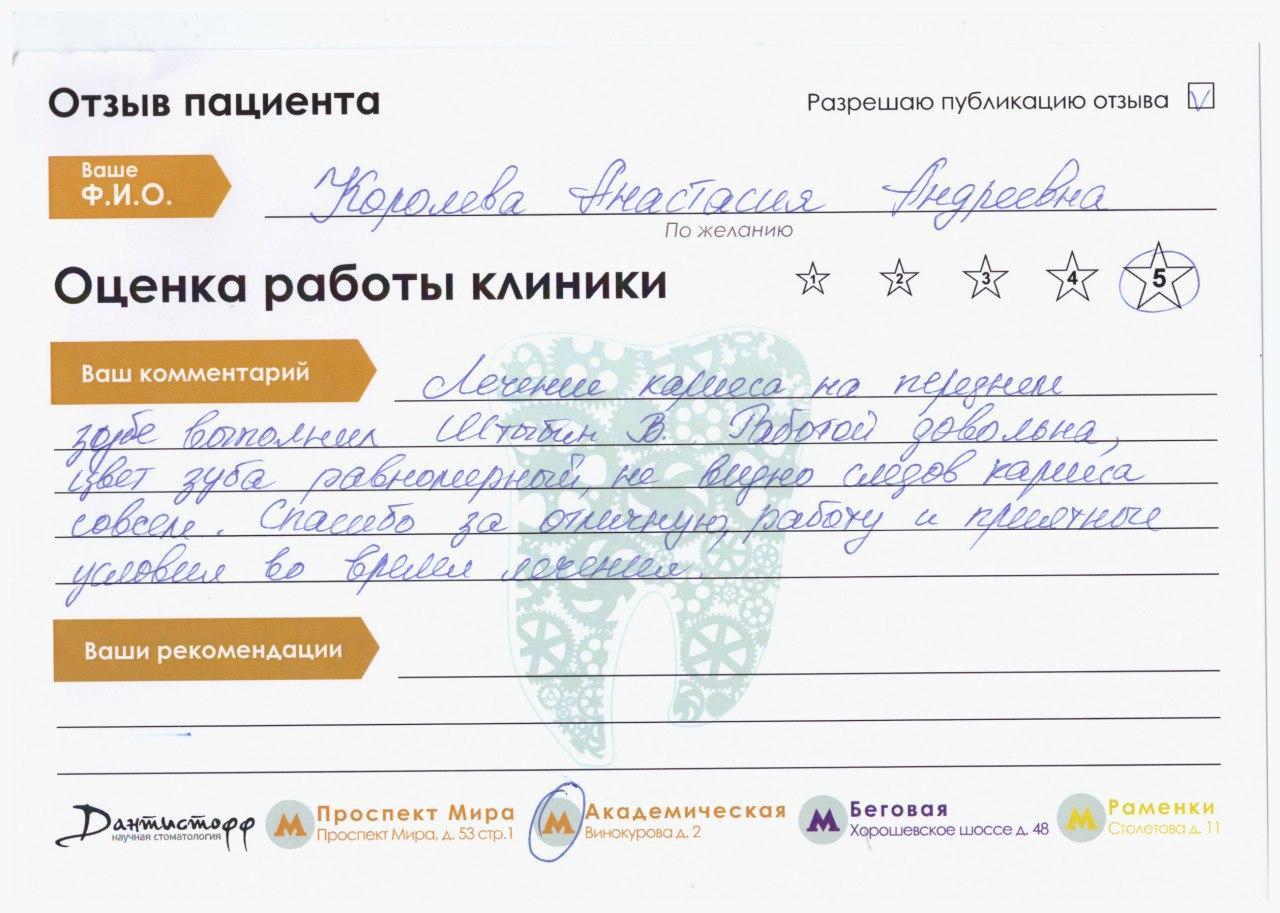 Отзыв пациента
Разрешаю публикацию отзыва V
Ваше
Ф.И.О.
Королева Анастасия Андреевна
По желанию
Оценка работы клиники
1 2 3 4 5
Ваш комментарий
Лечение кариеса на переднем
зубе выполнил Штыбин В. Работой довольна,
цвет зуба равномерный, не видно следов кариеса
совсем. Спасибо за отличную работу и приятные
условия во время лечения.
Ваши рекомендации
Дантистофф
научная стоматология
М Проспект Мира
Проспект Мира, д. 53 стр.1
М Академическая
Винокурова д. 2
М Беговая
Хорошевское шоссе д. 48
М Раменки
Столетова д. 11